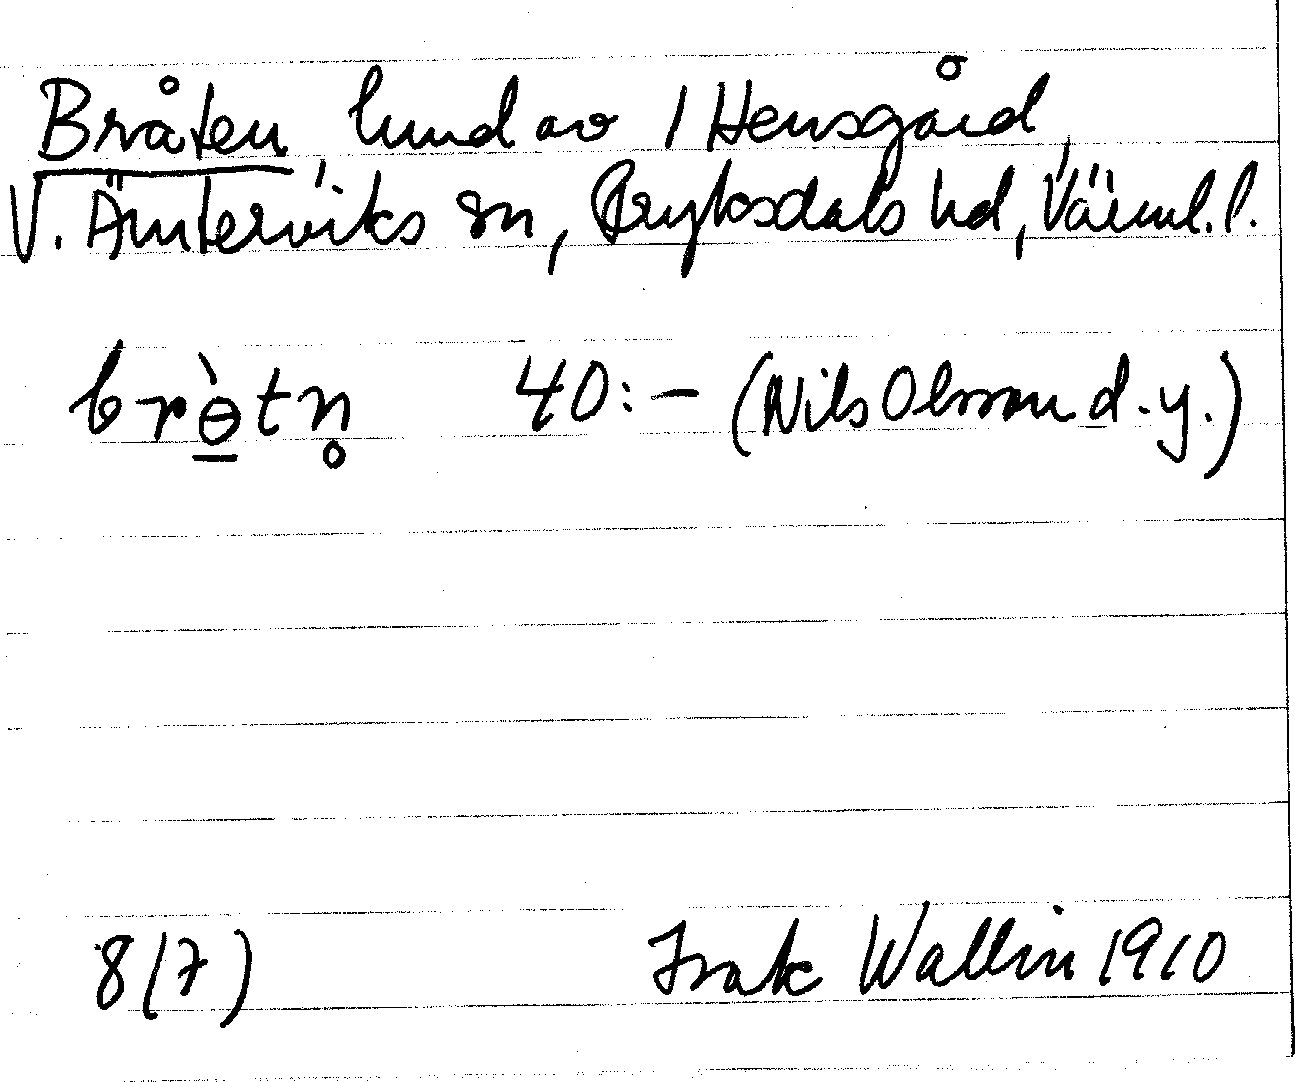 Bråten, lund av 1 Hensgård,
V. Ämterviks sn, Fryksdals hd, Värml. l.
brɵ̠̀tn̥ 40:- (Nils Olsson d.y.)
8(7) Isak Wallin 1910